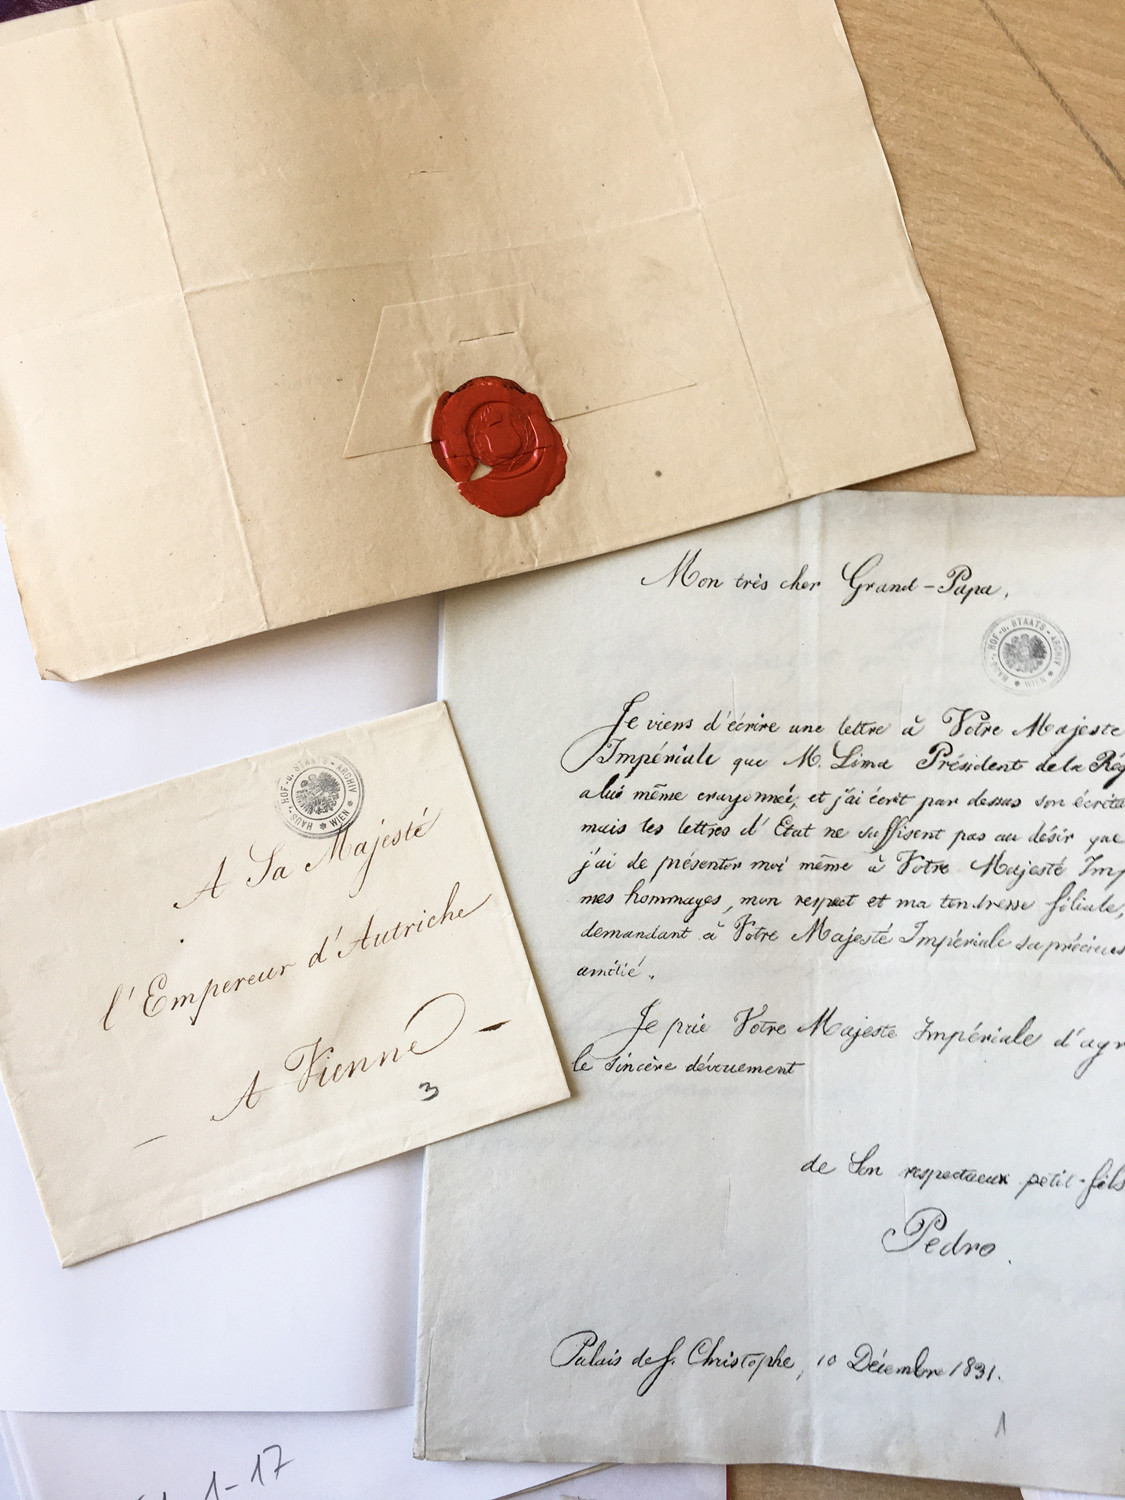 Mon très cher Grand-Papa,
HAUS- HOF- u. STAATS- ARCHIV
* WIEN *
Je viens d'écrire une lettre à Votre Majeste
Impériale que M. Lima Président de la Rég
a lui même crayonnée, et j'ai écrit par dessus son écritu
mais les lettres d'Etat ne suffisent pas au désir que
j'ai de présenter moi même à Votre Majesté Imp
mes hommages, mon respect et ma tendresse filiale,
demandant à Votre Majesté Impériale sa précieus
amitié.
Je prie Votre Majeste Impériale d'agr
le sincère dévouement
de Son respectueux petit-fils
Pedro.
Palais de S. Christophe, 10 Décembre 1831.
1
HAUS- HOF- u. STAATS- ARCHIV
* WIEN *
A Sa Majesté
l'Empereur d'Autriche
A Vienne
3
1-17